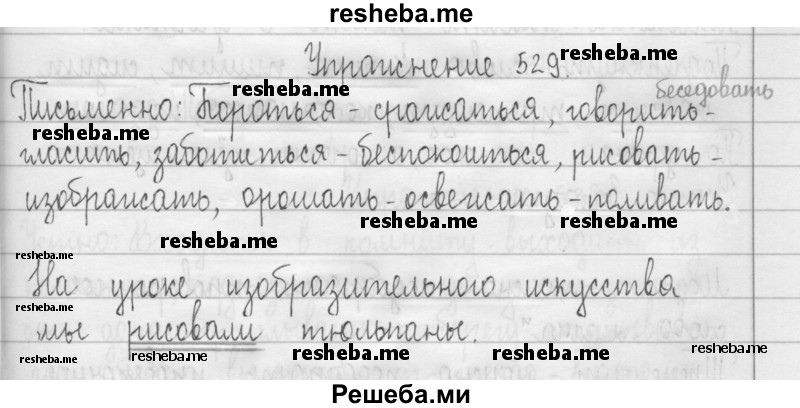 resheba.me
Упражнение 529. resheba.me
беседовать
Письменно: Бороться - сражаться, говорить -
resheba.me
resheba.me
гласить, заботиться - беспокоиться, рисовать -
изображать, орошать - освежать - поливать.
resheba.me resheba.me
resheba.me
resheba.me
На уроке изобразительного искусства
resheba.me
мы рисовали тюльпаны.
resheba.me resheba.me resheba.me resheba.me resheba.me
Решеба.ми